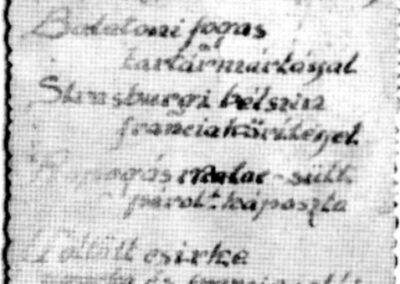 Balatoni fogas
tartármártással
Strasburgi bélszin
franciakörítéssel
Ropogós malac-sült
párolt káposzta
Töltött csirke